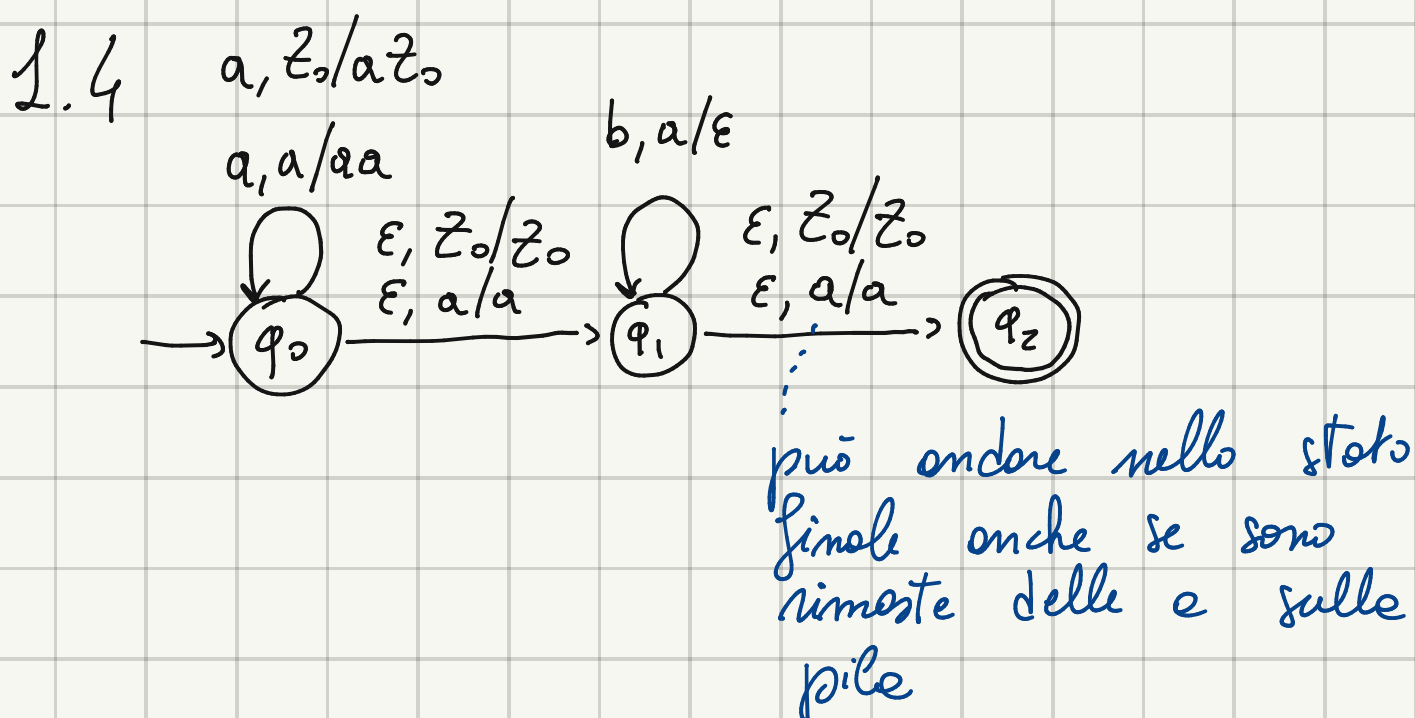 1.4
a, Z₀/aZ₀
a, a/aa
ε, Z₀/Z₀
ε, a/a
b, a/ε
ε, Z₀/Z₀
ε, a/a
q₀
q₁
q₂
può andare nello stato
finale anche se sono
rimaste delle a sulla
pila